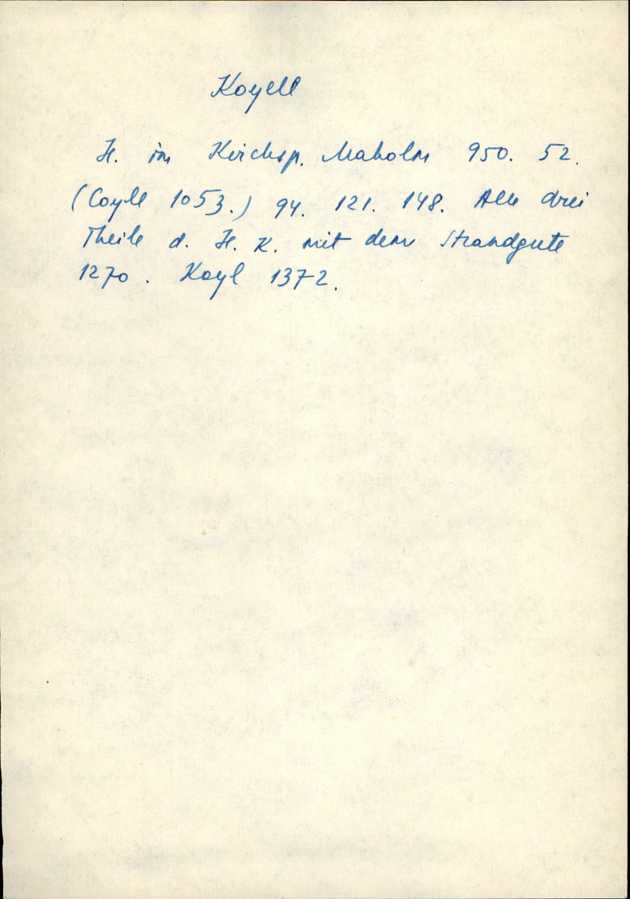 Koyell
H. im Kirchsp. Maholm 950. 52.
(Coyle 1053.) 94. 121. 148. Alle drei
Theile d. H. K. mit dem Strandgute
1270. Koyl 1372.